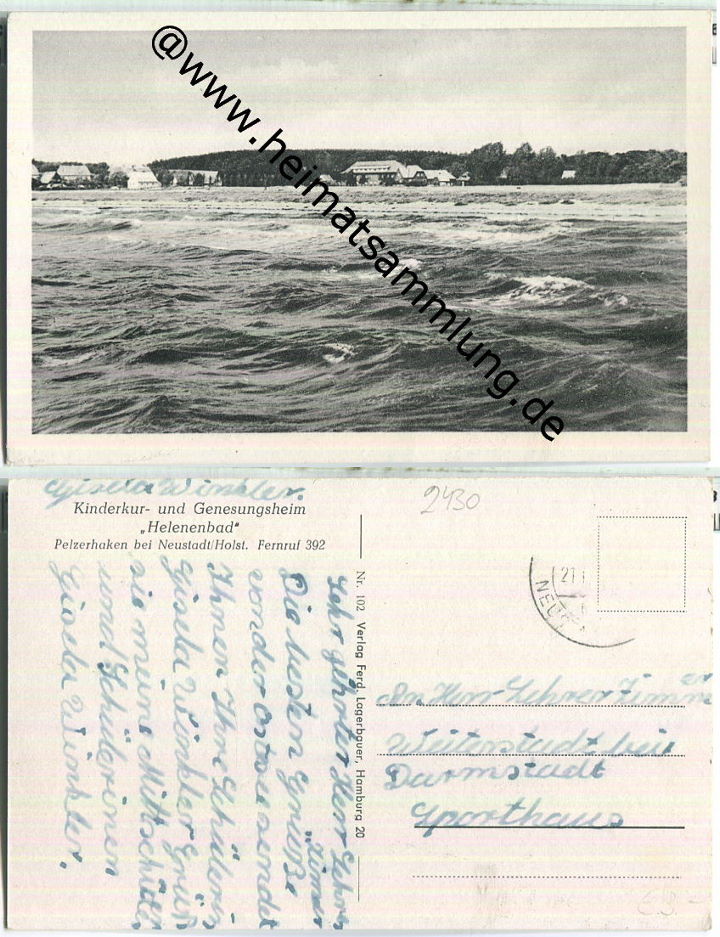 @www.heimatsammlung.de
Gisela Winkler.
Kinderkur- und Genesungsheim
„Helenenbad"
Pelzerhaken bei Neustadt/Holst. Fernruf 392
2430
21
NEUS
Nr. 102 Verlag Ferd. Lagerbauer, Hamburg 20
Sehr gehrter Herr Lehrer
Zimer
Die besten Grüße
von der Ostsee sendet
Ihnen Ihre Schülerin
Gisela Winkler Grüß
sie meine Mittschüler
und Schülerinen
Gisela Winkler.
An Herr Lehrer Zimmer
Weiterstadt bei
Darmstadt
Sporthaus